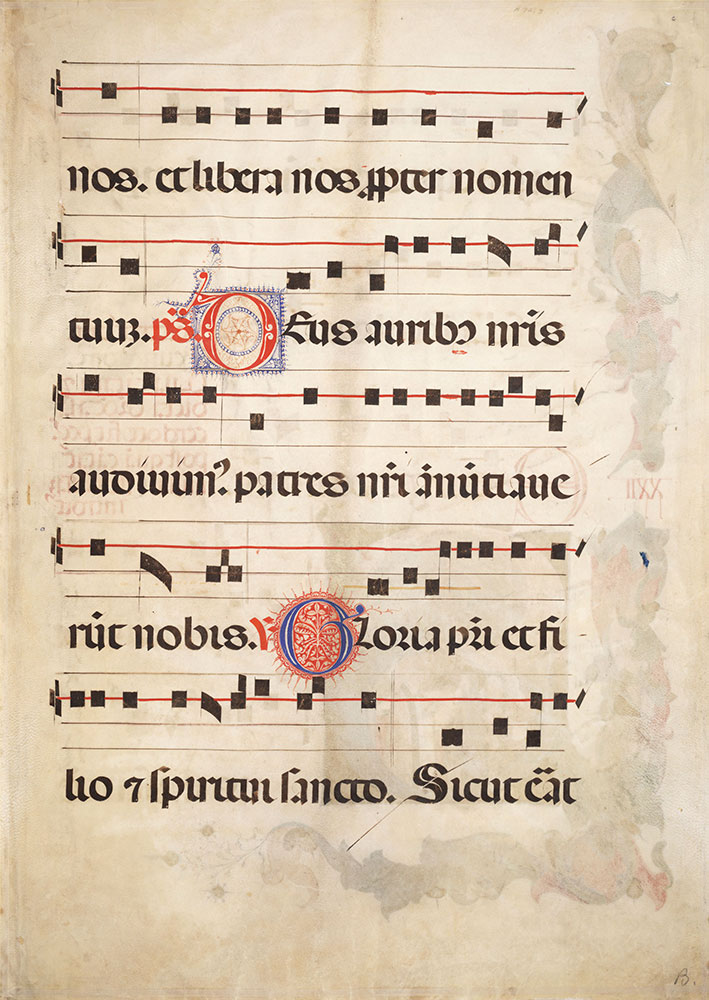 nos. et libera nos ꝓpter nomen
tuuꝫ. ps. Deus auribꝰ nr̄is
audiuimꝰ. patres nr̄i ānūtiaue
rūt nobis. V Gloria pr̄i et fi
lio ⁊ spiritui sancto. Sicut ēat
XXII
B.